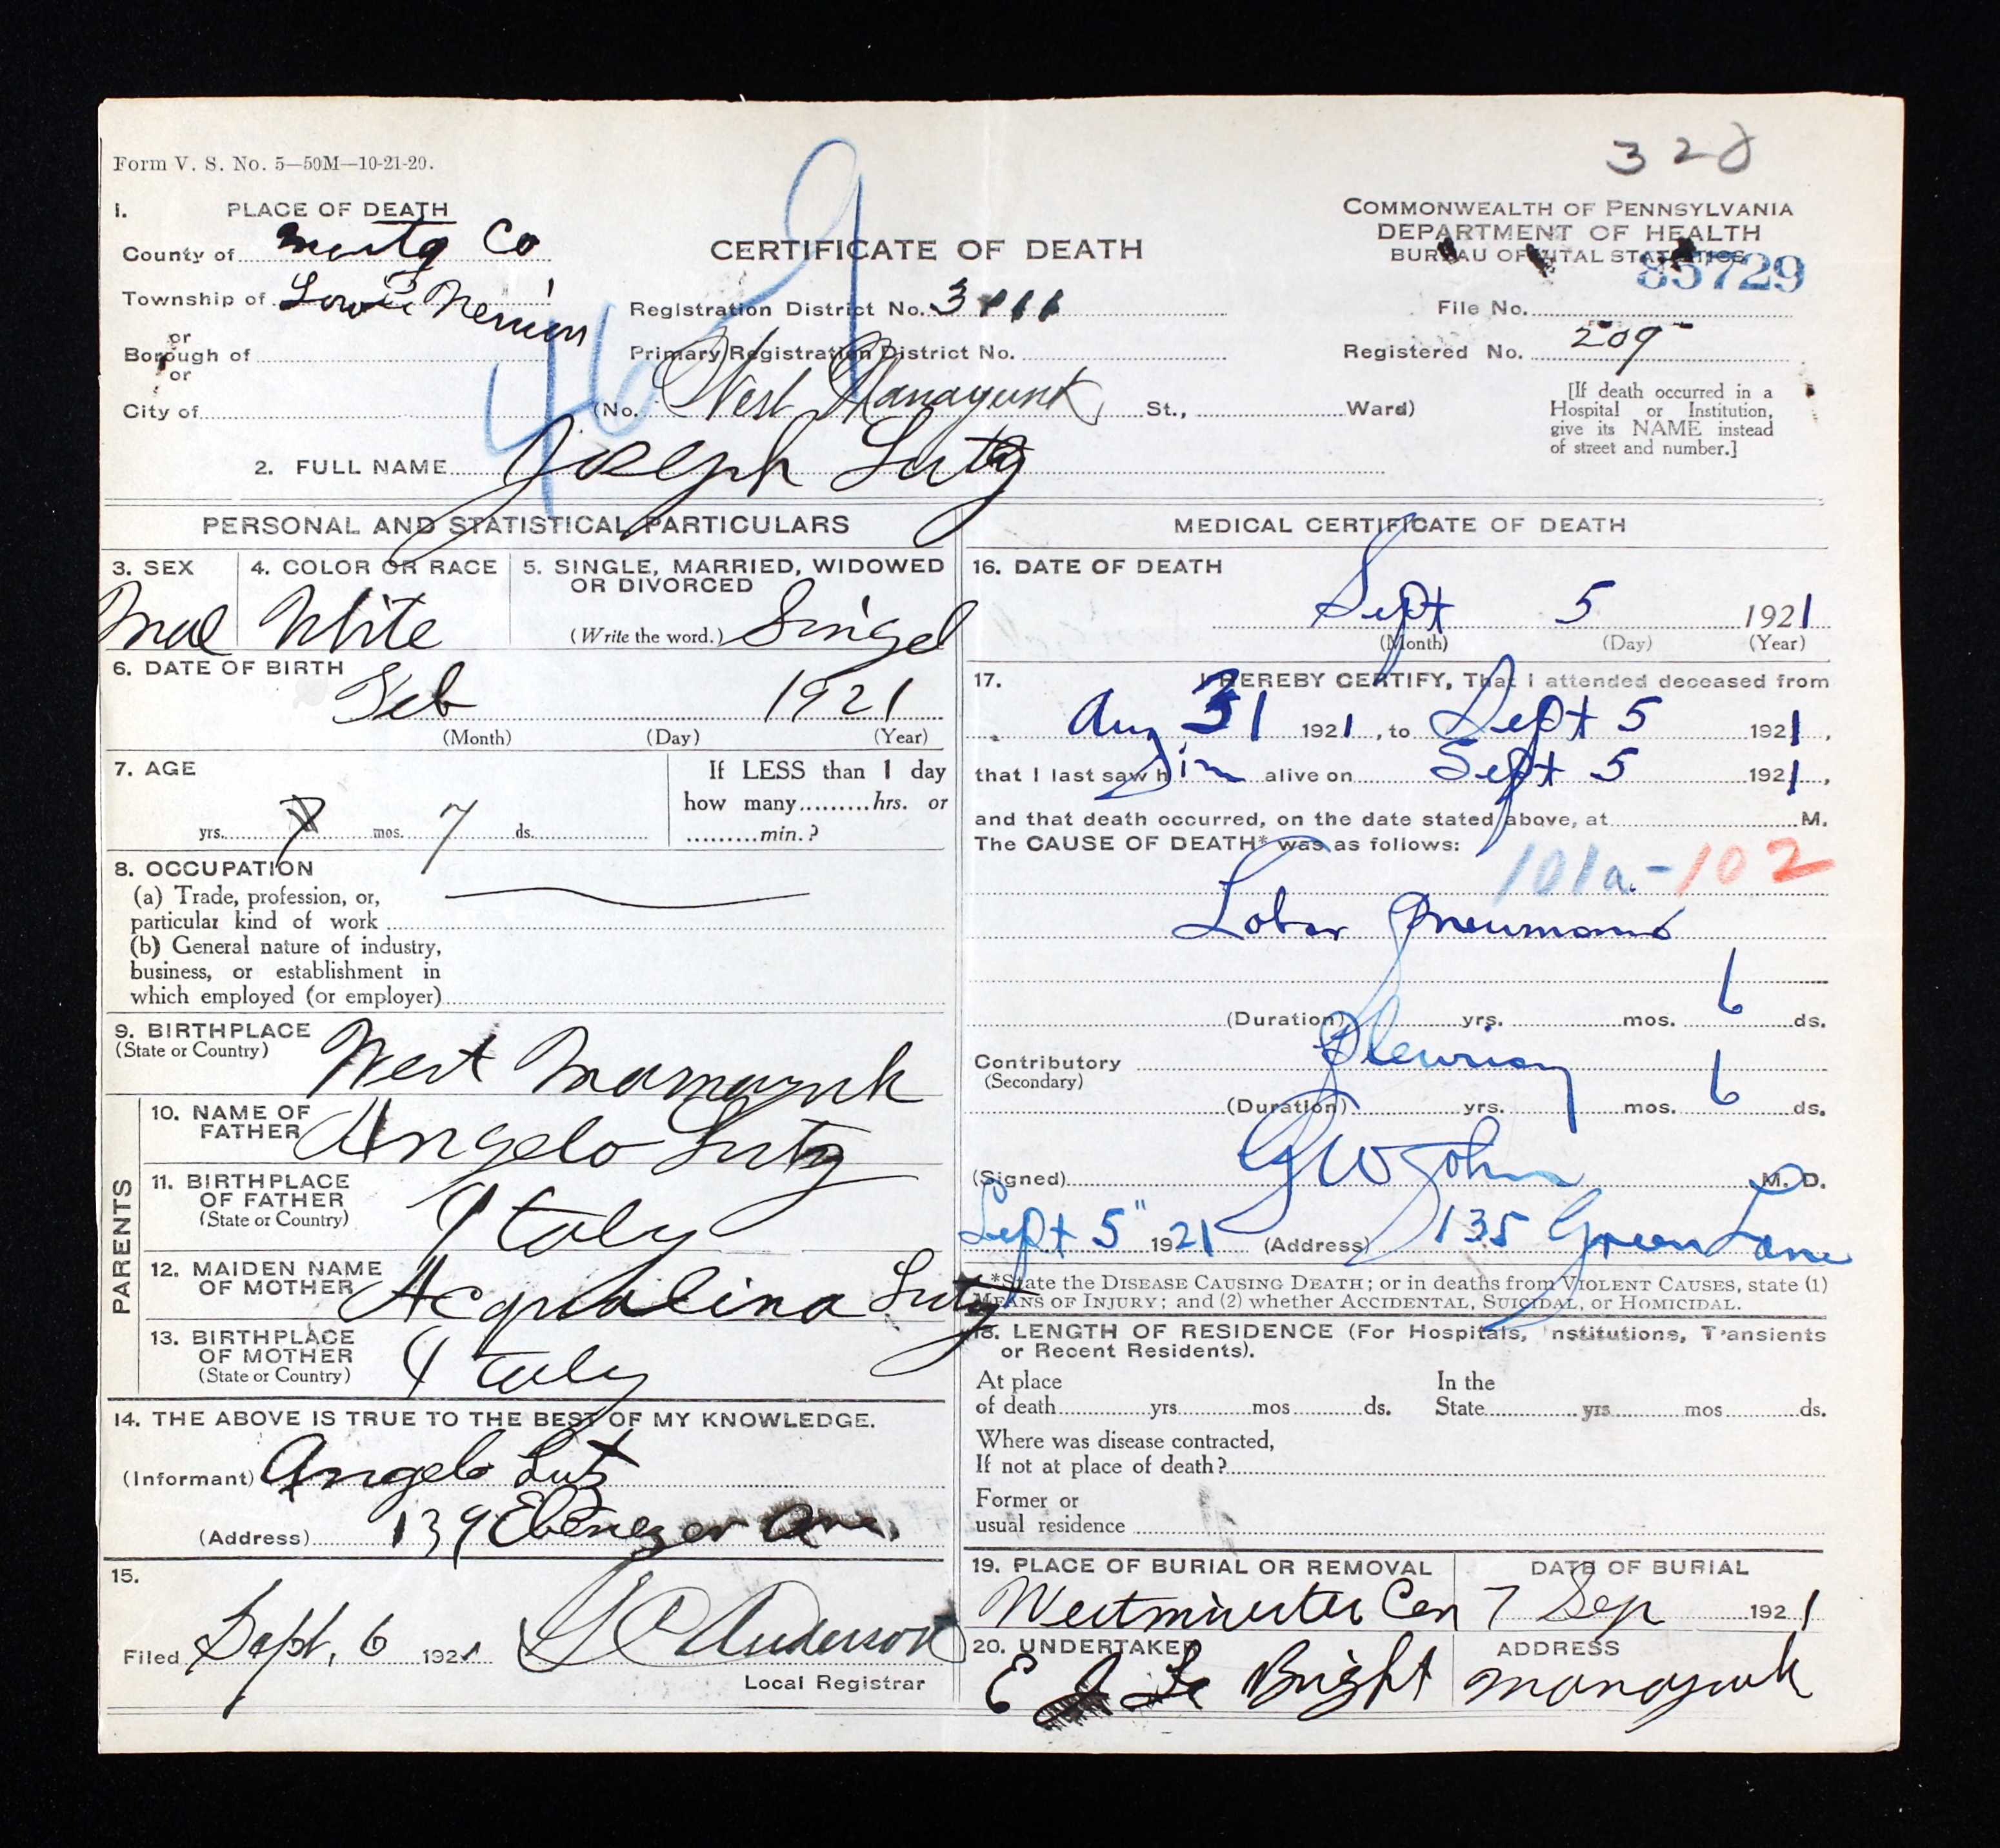 328
Form V. S. No. 5—50M—10-21-20.
1. PLACE OF DEATH
County of Montg Co
Township of Lower Merion
or
Borough of
or
City of
469
CERTIFICATE OF DEATH
Registration District No. 3111
Primary Registration District No.
(No. West Manayunk St., Ward)
COMMONWEALTH OF PENNSYLVANIA
DEPARTMENT OF HEALTH
BUREAU OF VITAL STATISTICS
85729
File No.
Registered No. 209
[If death occurred in a
Hospital or Institution,
give its NAME instead
of street and number.]
2. FULL NAME Joseph Lutz
PERSONAL AND STATISTICAL PARTICULARS
3. SEX
Mal
4. COLOR OR RACE
White
5. SINGLE, MARRIED, WIDOWED
OR DIVORCED
(Write the word.) Singel
6. DATE OF BIRTH
Feb 1921
(Month) (Day) (Year)
7. AGE
yrs. 7 mos. 7 ds.
If LESS than 1 day
how many hrs. or
min.?
8. OCCUPATION
(a) Trade, profession, or,
particular kind of work
(b) General nature of industry,
business, or establishment in
which employed (or employer)
9. BIRTHPLACE
(State or Country)
West Manayunk
PARENTS
10. NAME OF
FATHER Angelo Lutz
11. BIRTHPLACE
OF FATHER
(State or Country) Italy
12. MAIDEN NAME
OF MOTHER Acqualina Lutz
13. BIRTHPLACE
OF MOTHER
(State or Country) Italy
14. THE ABOVE IS TRUE TO THE BEST OF MY KNOWLEDGE.
(Informant) Angelo Lutz
(Address) 139 Ebenezer Ave.
15.
Filed Sept. 6 1921 Anderson
Local Registrar
MEDICAL CERTIFICATE OF DEATH
16. DATE OF DEATH
Sept 5 1921
(Month) (Day) (Year)
17. I HEREBY CERTIFY, That I attended deceased from
Aug 31 1921, to Sept 5 1921,
that I last saw him alive on Sept 5 1921,
and that death occurred, on the date stated above, at M.
The CAUSE OF DEATH* was as follows:
101a-102
Lobar Pneumonia
(Duration) yrs. mos. 6 ds.
Contributory Pleurisy
(Secondary)
(Duration) yrs. mos. 6 ds.
(Signed) G W John M. D.
Sept 5" 1921 (Address) 135 Green Lane
*State the DISEASE CAUSING DEATH; or in deaths from VIOLENT CAUSES, state (1)
MEANS OF INJURY; and (2) whether ACCIDENTAL, SUICIDAL, or HOMICIDAL.
18. LENGTH OF RESIDENCE (For Hospitals, Institutions, Transients
or Recent Residents).
At place
of death yrs mos ds.
In the
State yrs mos ds.
Where was disease contracted,
If not at place of death?
Former or
usual residence
19. PLACE OF BURIAL OR REMOVAL
Westminster Cem
DATE OF BURIAL
7 Sep 1921
20. UNDERTAKER
E Le Bright
ADDRESS
Manayunk